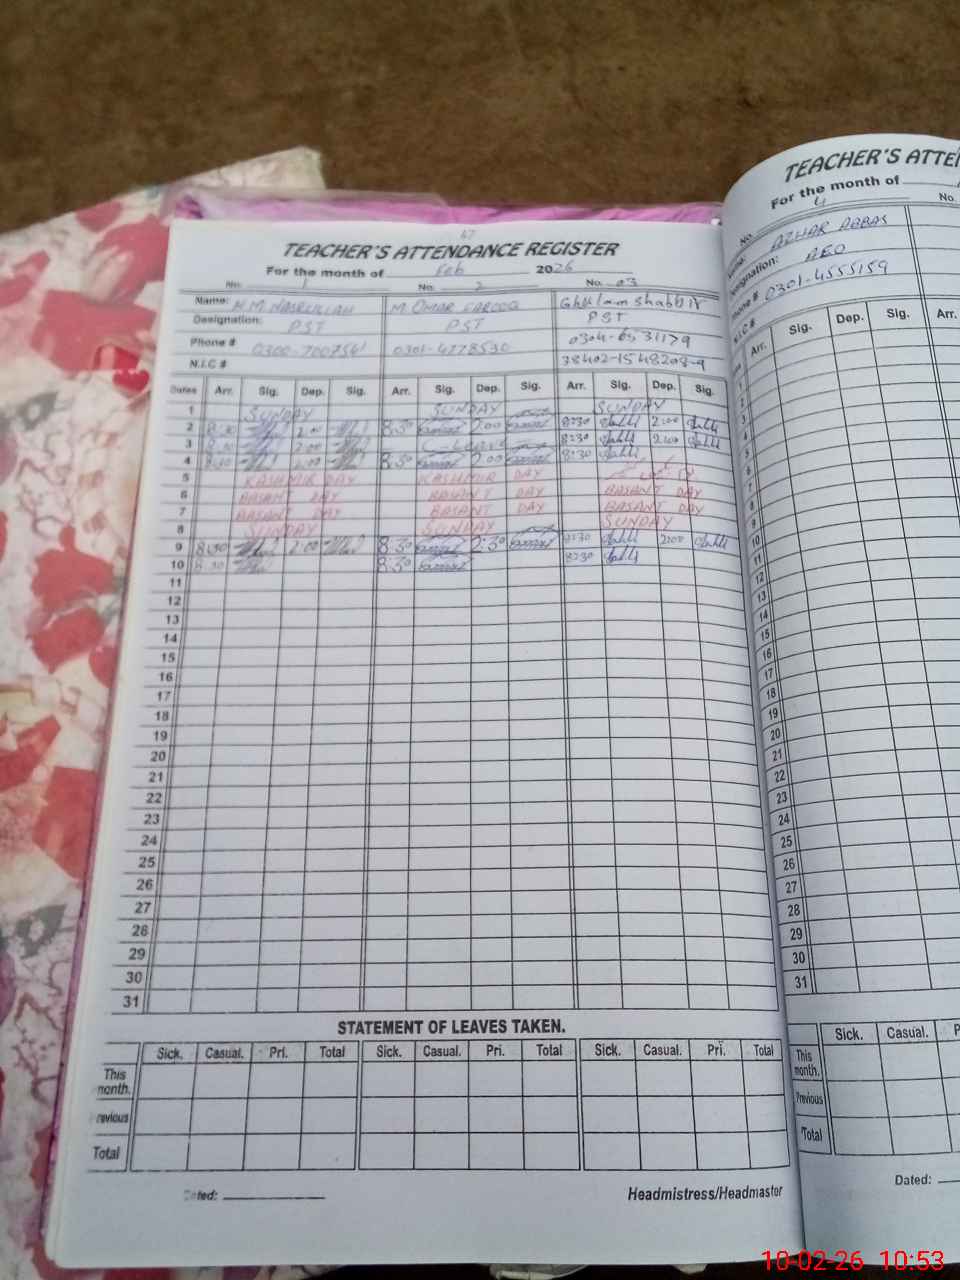 TEACHER'S ATTENDANCE REGISTER
For the month of Feb 2026
No. 1 No. 2 No. 03
Name: H.M NASRULLAH M. OMAR FAROOQ Ghulam Shabbir
Designation: PST PST PST
Phone # 0301-4778530 0304-6531179
N.I.C # 38402-1548208-9
Dates Arr. Sig. Dep. Sig. Arr. Sig. Dep. Sig. Arr. Sig. Dep. Sig.
1 SUNDAY SUNDAY SUNDAY
2 8:30 2:00 8:30 2:00 8:30 2:00
3 8:30 2:00 C. Leave 8:30 2:00
4 8:30 2:00 8:30 2:00 8:30
5 KASHMIR DAY KASHMIR DAY
6 BASANT DAY BASANT DAY BASANT DAY
7 BASANT DAY BASANT DAY BASANT DAY
8 SUNDAY SUNDAY SUNDAY
9 8:30 2:00 8:30 2:30 8:30 2:00
10 8:30 8:30 8:30
11
12
13
14
15
16
17
18
19
20
21
22
23
24
25
26
27
28
29
30
31
STATEMENT OF LEAVES TAKEN.
Sick. Casual. Pri. Total Sick. Casual. Pri. Total Sick. Casual. Pri. Total
This month.
Previous
Total
Dated: Headmistress/Headmaster
TEACHER'S ATTE
For the month of
No. 4 No.
Name: AZHAR ABBAS
Designation: AEO
Phone # 0301-4555159
N.I.C #
Arr. Sig. Dep. Sig. Arr.
1
2
3
4
5
6
7
8
9
10
11
12
13
14
15
16
17
18
19
20
21
22
23
24
25
26
27
28
29
30
31
Sick. Casual. P
This month.
Previous
Total
Dated:
10-02-26 10:53